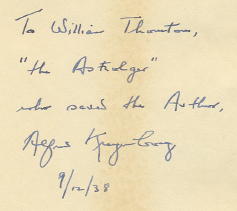 To William Thornton,
"the Astrologer"
who saved the Author,
Alfred Kreymborg
9/12/38